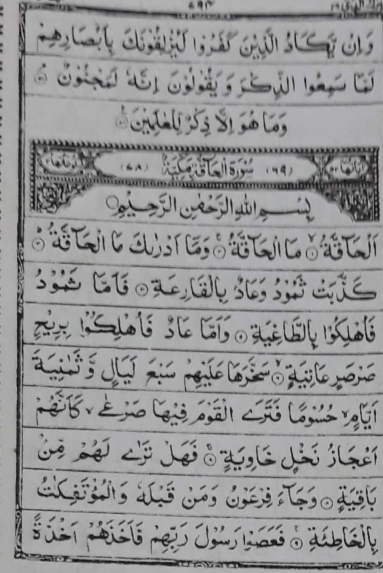 ٤٩٤
وَاِنْ يَّكَادُ الَّذِيْنَ كَفَرُوْا لَيُزْلِقُوْنَكَ بِاَبْصَارِهِمْ
لَمَّا سَمِعُوا الذِّكْرَ وَيَقُوْلُوْنَ اِنَّهٗ لَمَجْنُوْنٌ
وَمَا هُوَ اِلَّا ذِكْرٌ لِّلْعٰلَمِيْنَ
(٦٩) سُوْرَةُ الْحَآقَّةِ مَكِّيَّةٌ (٧٨)
بِسْمِ اللهِ الرَّحْمٰنِ الرَّحِيْمِ
اَلْحَآقَّةُ مَا الْحَآقَّةُ وَمَآ اَدْرٰىكَ مَا الْحَآقَّةُ
كَذَّبَتْ ثَمُوْدُ وَعَادٌۢ بِالْقَارِعَةِ فَاَمَّا ثَمُوْدُ
فَاُهْلِكُوْا بِالطَّاغِيَةِ وَاَمَّا عَادٌ فَاُهْلِكُوْا بِرِيْحٍ
صَرْصَرٍ عَاتِيَةٍ سَخَّرَهَا عَلَيْهِمْ سَبْعَ لَيَالٍ وَّثَمٰنِيَةَ
اَيَّامٍ حُسُوْمًا فَتَرَى الْقَوْمَ فِيْهَا صَرْعٰى كَاَنَّهُمْ
اَعْجَازُ نَخْلٍ خَاوِيَةٍ فَهَلْ تَرٰى لَهُمْ مِّنْۢ
بَاقِيَةٍ وَجَآءَ فِرْعَوْنُ وَمَنْ قَبْلَهٗ وَالْمُؤْتَفِكٰتُ
بِالْخَاطِئَةِ فَعَصَوْا رَسُوْلَ رَبِّهِمْ فَاَخَذَهُمْ اَخْذَةً